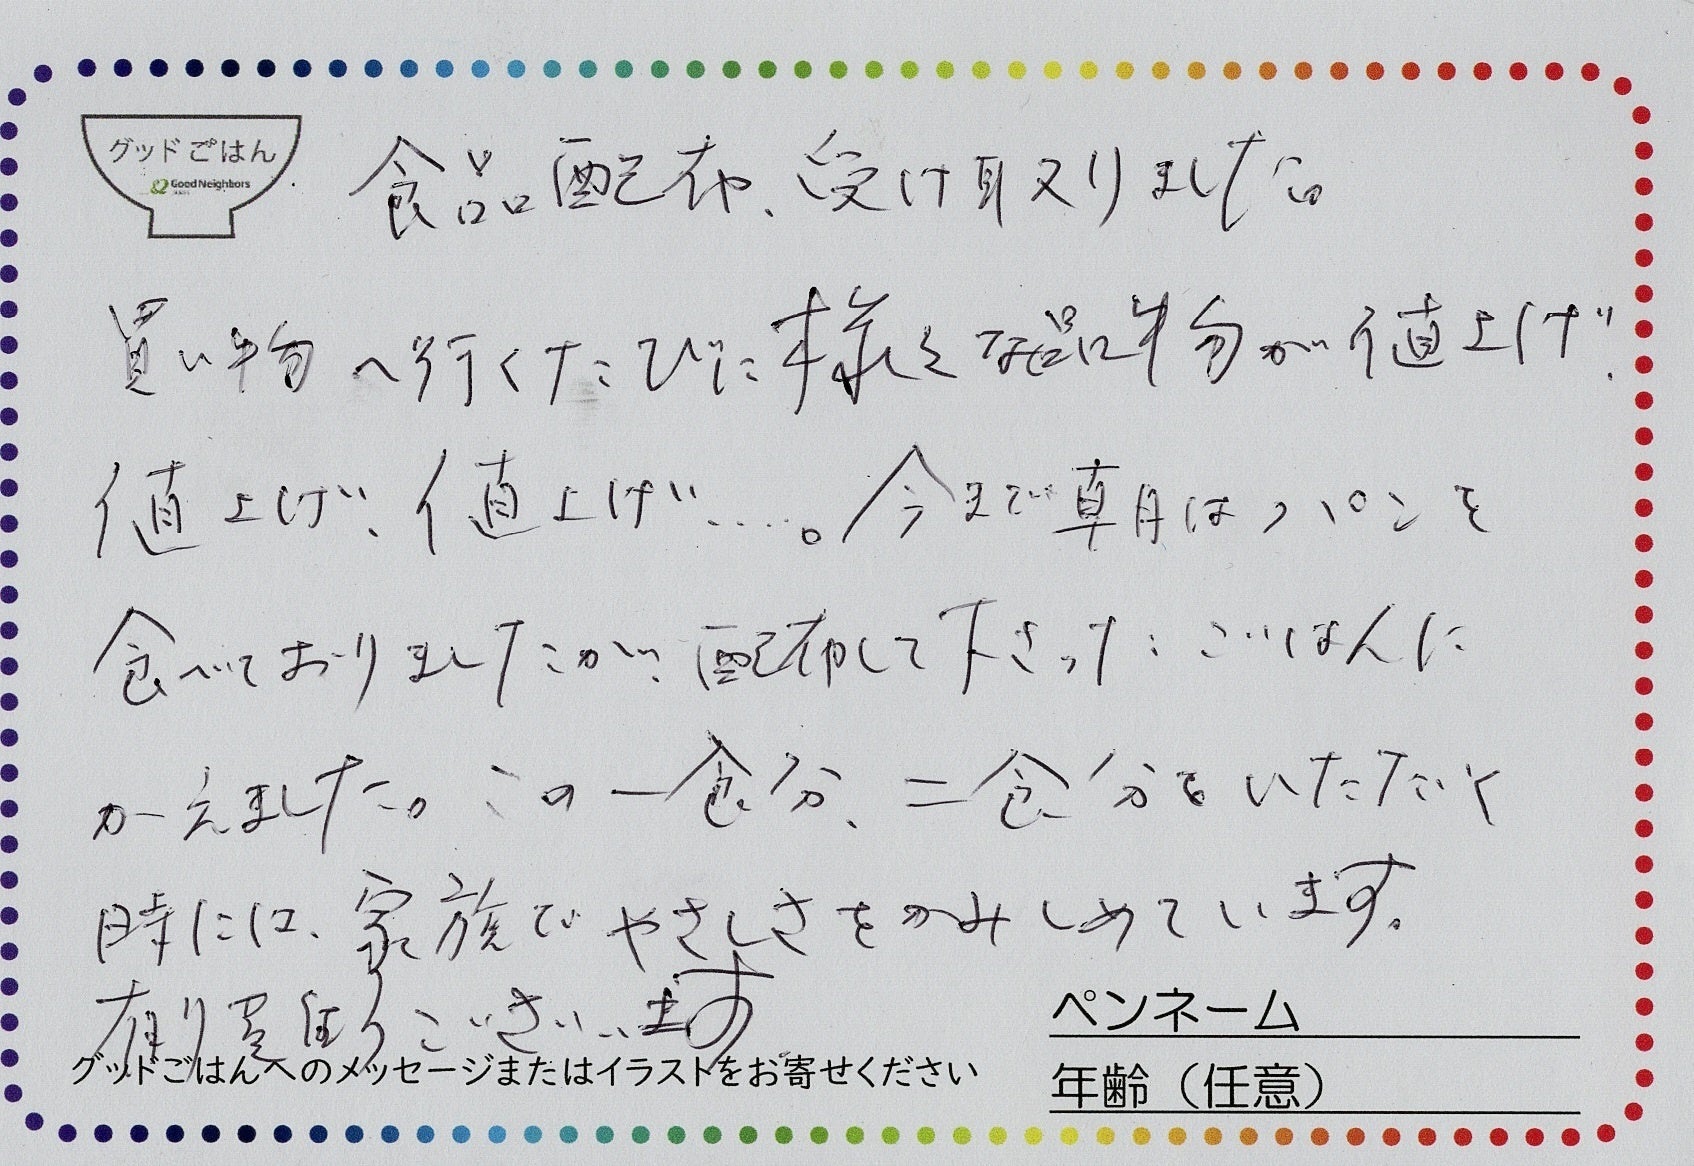 グッドごはん
Good Neighbors
食品配布、受け取りました。
買い物へ行くたびに様々な品物が値上げ、
値上げ、値上げ……。今まで朝はパンを
食べておりましたが、配布して下さったごはんに
かえました。この一食分、二食分をいただく
時には、家族でやさしさをかみしめています。
有り難うございます
グッドごはんへのメッセージまたはイラストをお寄せください
ペンネーム
年齢（任意）